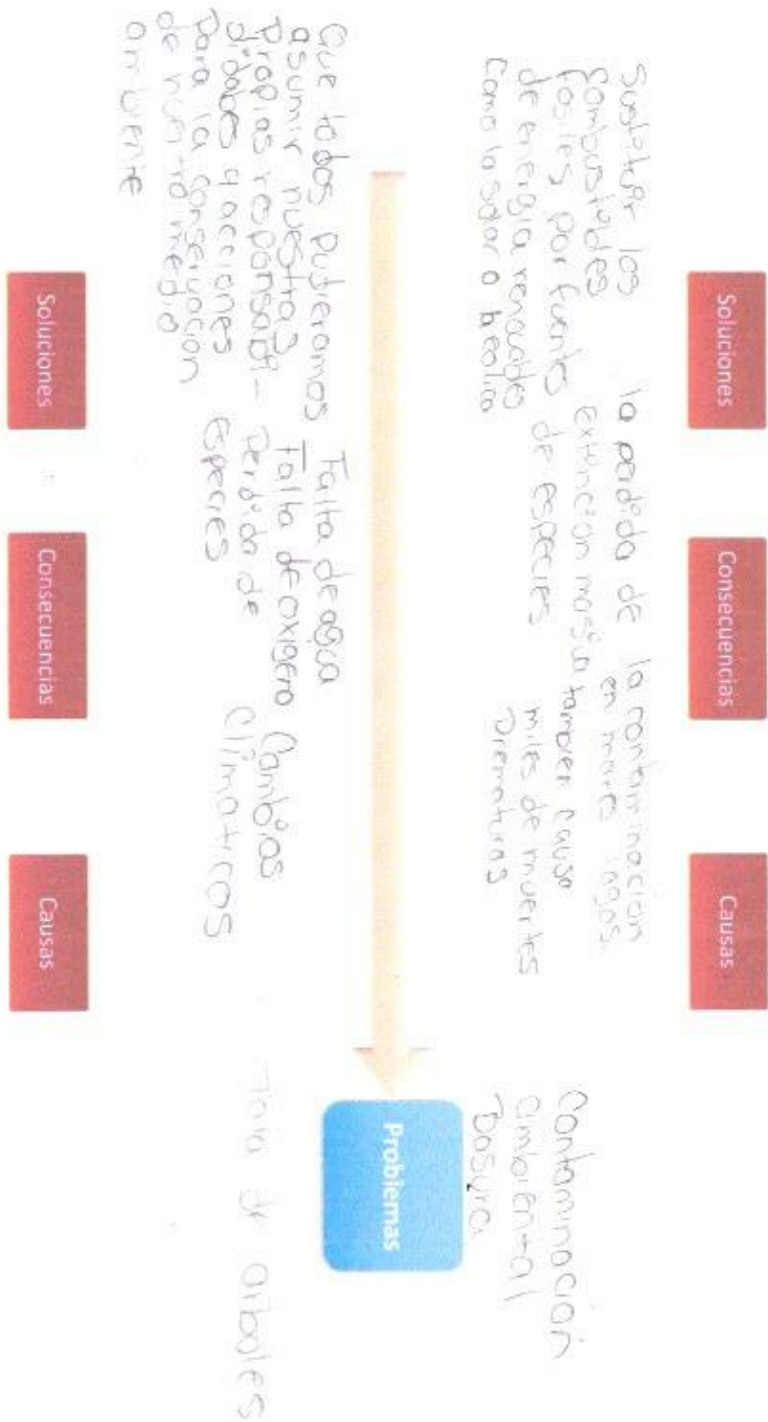 Soluciones
Consecuencias
Causas
Sustituir los
Combustibles
fósiles, por fuentes
de energía renovables
como la solar o la eolica
la perdida de
extención masiva
de especies
la contaminacion
en mares lagos.
tambien causa
miles de muertes
Prematuras
Contaminacion
ambiental
Basura
Problemas
Que todos pudieramos
asumir nuestras
propias responsabi-
didades y acciones
para la conservacion
de nuestro medio
ambiente
Falta de agua
Falta de oxigeno
Perdida de
Especies
Cambios
Climaticos
Tala de arboles
Soluciones
Consecuencias
Causas